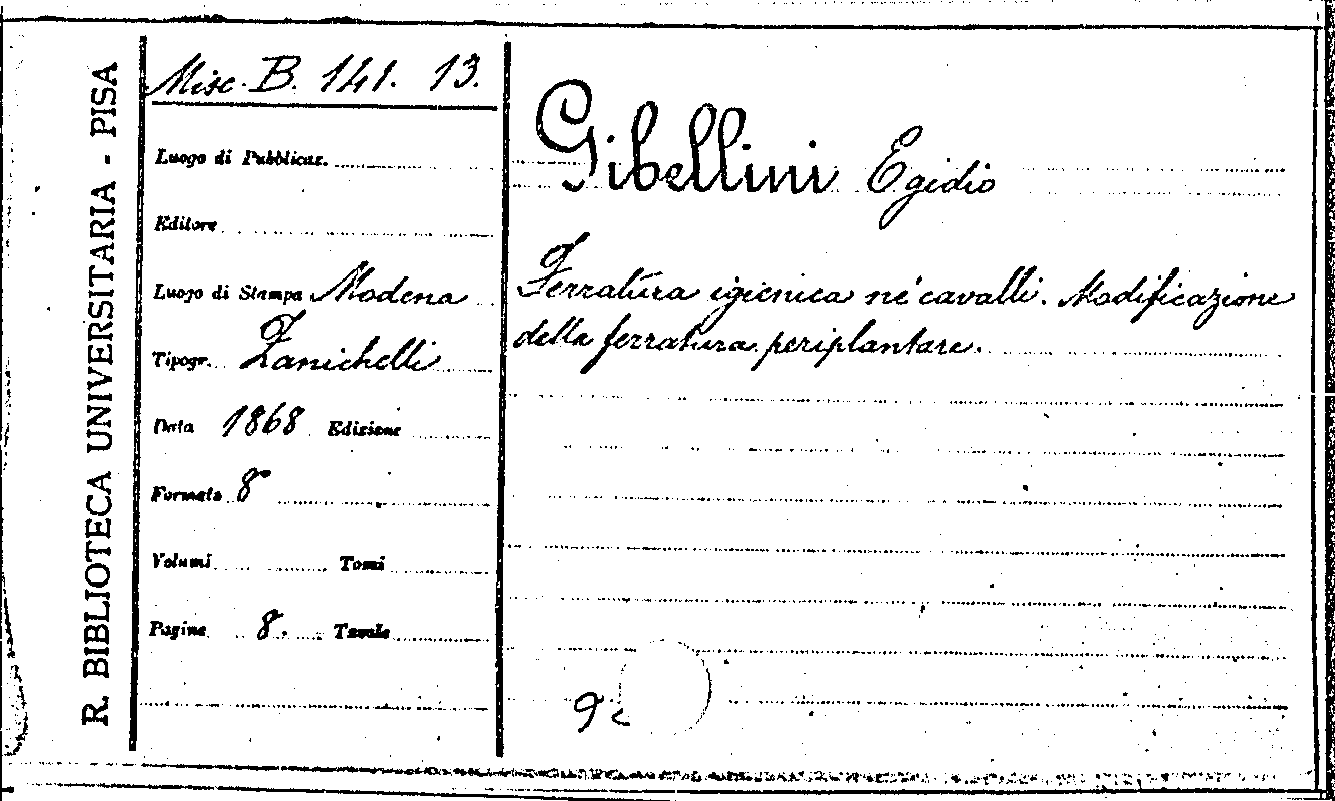 R. BIBLIOTECA UNIVERSITARIA - PISA
Misc. B. 141. 13.
Luogo di Pubblicaz.
Editore
Luogo di Stampa Modena
Tipogr. Zanichelli
Data 1868 Edizione
Formato 8
Volumi Tomi
Pagine 8. Tavole
Gibellini Egidio
Ferratura igienica ne' cavalli. Modificazione
della ferratura periplantare.